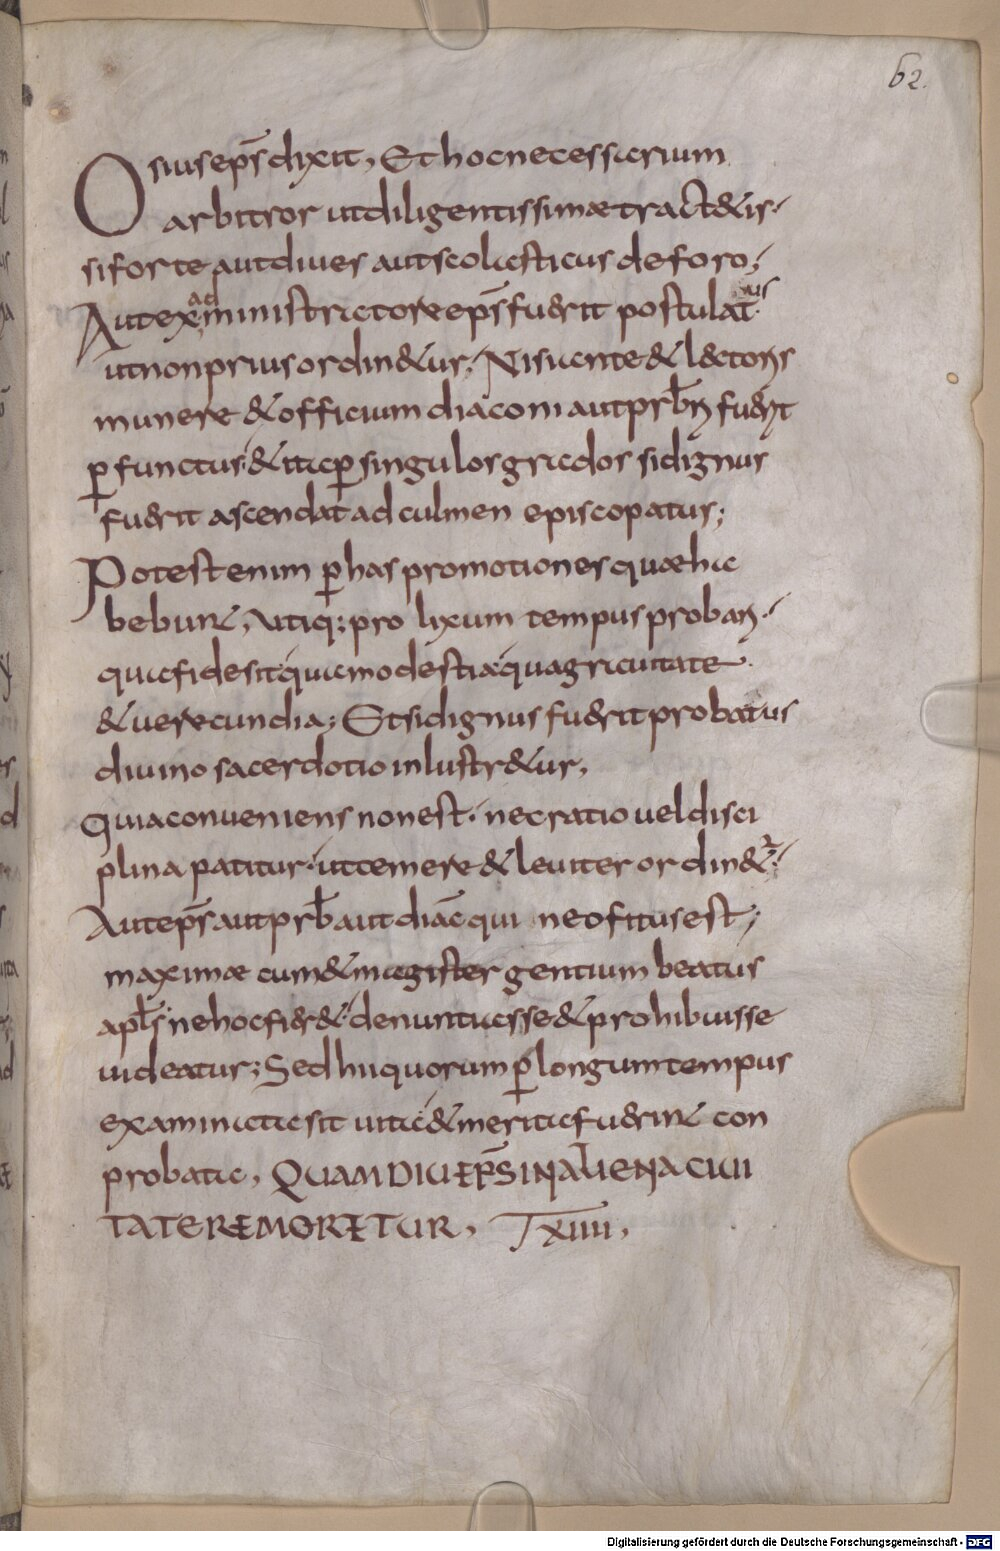 62.
Osius ep̄s dixit, Et hoc necessarium
arbitror ut diligentissimæ tract&is·
si forte aut diues aut scolasticus de foro;
Aut ex administratore ep̄s fuerit postulatus
ut non prius ordin&ur; Nisi ante & lectoris
munere & officium diaconi aut prb̄ri fuerit
ꝑfunctus & ita ꝑ singulos grados si dignus
fuerit ascendat ad culmen episcopatus;
Potest enim ꝑ has promotiones quæ ha
bebunt, Utiq; pro lixum tempus probari·
qua fide sit qua modestia qua grauitate
& uerecundia; Et si dignus fuerit probatus
diuino sacerdotio inlustr&ur,
Quia conueniens non est· nec ratio uel disci
plina patitur· ut temere & leuiter ordin&ur;
Aut ep̄s aut prb̄ aut diac̄ qui neofitus est;
maximæ cum & magister gentium beatus
apłs ne hoc fier&· denuntiasse & prohibuisse
uideatur; Sed hii quorum ꝑ longum tempus
examinata sit uita & merita fuerint con
probata, QUAMDIU EP̄S IN ALIENA CIUI
TATE REMORETUR, T XIIII,
Digitalisierung gefördert durch die Deutsche Forschungsgemeinschaft - DFG